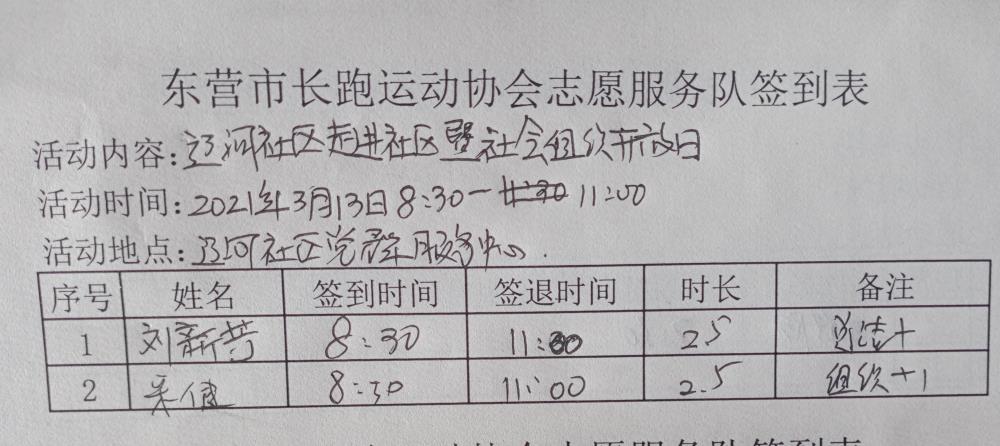 东营市长跑运动协会志愿服务队签到表
活动内容:辽河社区走进社区暨社会组织开放日
活动时间:2021年3月13日8:30一11:00
活动地点:辽河社区党群服务中心.
序号 姓名 签到时间 签退时间 时长 备注
1 刘新芳 8:30 11:00 2.5 总结+
2 健 8:30 11:00 2.5 组织+1